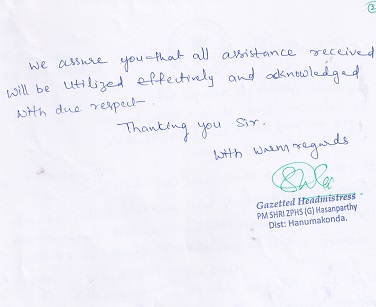 2
We assure you that all assistance received
will be utilized effectively and acknowledged
with due respect.
Thanking you Sir.
With warm regards
Gazetted Headmistress
PM SHRI ZPHS (G) Hasanparthy
Dist: Hanumakonda.